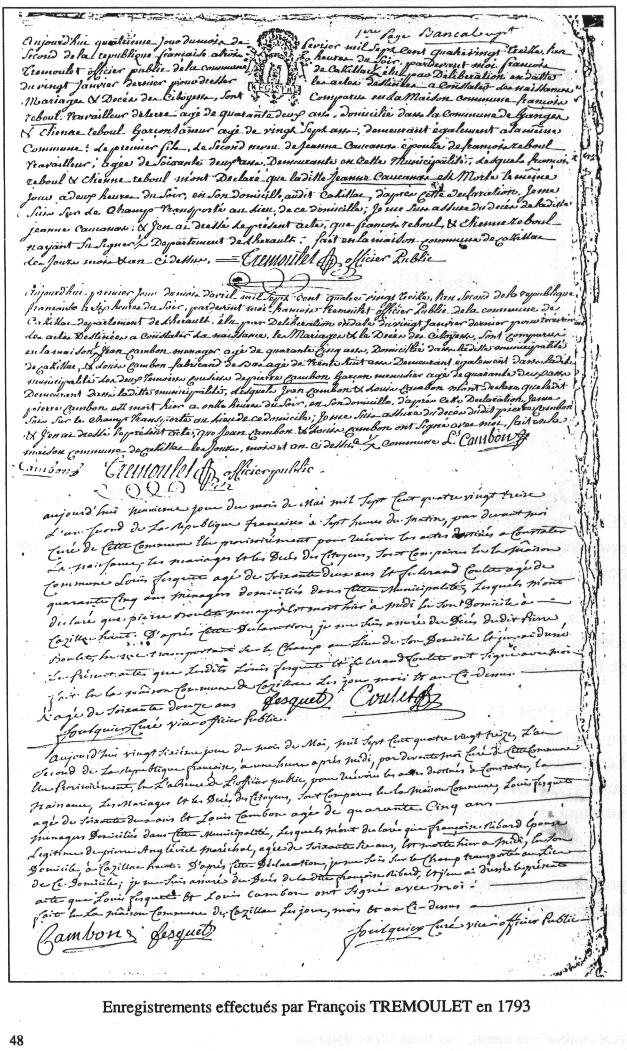 1ere Page Bancal Spt
Aujourdhuy quatrieme Jour du mois de fevrier mil Sept Cent quatre vingt treise, Lan
Second de la republique francaise a heure du Soir, pardevant moi françois
Tremoulet officier public de la commune de Cazillac élu par Deliberation en datte
du vingt Janvier dernier pour dresser les actes destinés a Constater les naissances
Mariages & Decès des Citoyens, Sont Comparus en la Maison commune françois
reboul. travailleur de terre agé de quarante deux ans, domicilié dans la Commune de Ganges
& Etienne reboul garçon agé de vingt Sept ans, demeurant également a la même
Commune: Le premier fils, Le Second neveu de Jeanne Caucanas épouse de françois reboul
travailleur, agée de Soixante deux ans. Demeurante en Cette Municipalité, Lesquels françois
reboul & Etienne reboul m'ont Declaré que la ditte Jeanne Caucanas est Morte le même
Jour a deux heures du Soir, en Son domicile, audit Cazillac, d'après Cette declaration, Je me
Suis Sur Le Champ transporté au Lieu de ce domicile; Je me Suis assuré du décès de la ditte
jeanne Caucanas: & J'en ai dressé le present acte, que francois reboul, & Etienne reboul
n'ayant Su Signer Departement de Lherault: fait en la maison commune de Cazillac
Les Jours mois & an ci dessus. = Tremoulet officier Public
Aujourdhuy premier Jour du mois d'avril mil Sept Cent quatre vingt treise, Lan Second de la republique
francaise a Six heures du Soir, pardevant moi françois Tremoulet officier Public de la commune de
Cazillac departement de Lherault, élu par Deliberation en date du vingt Janvier dernier pour recevoir
Les actes Destinés a Constater La naissance, les Mariages & le Decès des Citoyens, Sont Comparus
en la maison Jean Cambon menager agé de quarante Cinq ans, Domicilié dans laditte municipalité
de Cazillac, & Louis Cambon fabricand de Bas agé de trente huit ans Demeurant également dans laditte
municipalité Les deux temoins Cousins de pierre Cambon Garçon menusier agé de quarante deux ans
Demeurant dans laditte municipalité, Lesquels Jean Cambon & Louis Cambon m'ont declaré que ledit
pierre Cambon est mort hier a onze heures du Soir, en Son domicile, d'après Cette Declaration Je me
Suis Sur le Champ transporté au Lieu de ce domicile; Je me Suis assuré du décès dudit pierre Cambon
& J'en ai dressé le présent acte, que Jean Cambon & Louis Cambon ont Signé avec moi, fait en la
maison commune de Cazillac les Jours, mois et an ci dessus commune L. Cambon
Cambon Tremoulet officier public.
aujourd'huy neuvieme jour du mois de Mai mil Sept Cent quatre vingt treze
L'an Second de La Republique francaise a Sept heures du Matin, par devant moi
Curé de Cette Commune Elu provisoirement pour recevoir les actes destinés a Constater
La naissance, les mariages et les Decès des Citoyens, Sont Comparus en la Maison
Commune Louis fesquet agé de Soixante deux ans et fulcrand Coulet agé de
quarante Cinq ans Menagers domiciliés dans Cette Municipalité, Lesquels m'ont
déclaré que pierre Boulet menager est mort hier a midi en Son Domicile a
Cazillac haut. D'après Cette Declaration, je me Suis assuré du Décès dudit Pierre
Boulet, en me transportant Sur le Champ au Lieu de Son Domicile et j'en ai dressé
Le Present acte que Lesdits Louis fesquet et fulcrand Coulet ont Signé avec moi
fait en la maison Commune de Cazillac Les jour mois et an Ci-dessus
& agé de Soixante douze ans fesquet Coulet
Soulquier Curé vice officier Public.
Aujourd'huy vingt Sixième jour du mois de Mai, mil Sept Cent quatre vingt treize, L'an
Second de La Republique francaise, a une heure après midi, par devant moi Curé de Cette Commune
Elu Provisoirement, en L'absence de L'officier public, pour recevoir les actes destinés a Constater, la
Naissance, Les Mariages et les Decès des Citoyens, Sont Comparus en la Maison Commune, Louis fesquet
agé de Soixante deux ans et Louis Cambon agé de quarante Cinq ans
menagers Domiciliés dans Cette Municipalité, Lesquels m'ont declaré que françoise Ribard épouse
Legitime de pierre Angliviel Maréchal, agée de Soixante ans, est morte hier a Midi, en Son
Domicile, a Cazillac haut. D'après Cette Declaration, je me Suis Sur le Champ transporté au Lieu
de Ce Domicile; je me Suis assuré du Decès de laditte françoise Ribard, et j'en ai dressé le présent
acte que Louis fesquet et Louis Cambon ont Signé avec moi:
fait en La Maison Commune de Cazillac Les jour, mois et an Ci-dessus
Cambon fesquet Soulquier Curé vice officier Public
Enregistrements effectués par François TREMOULET en 1793
48